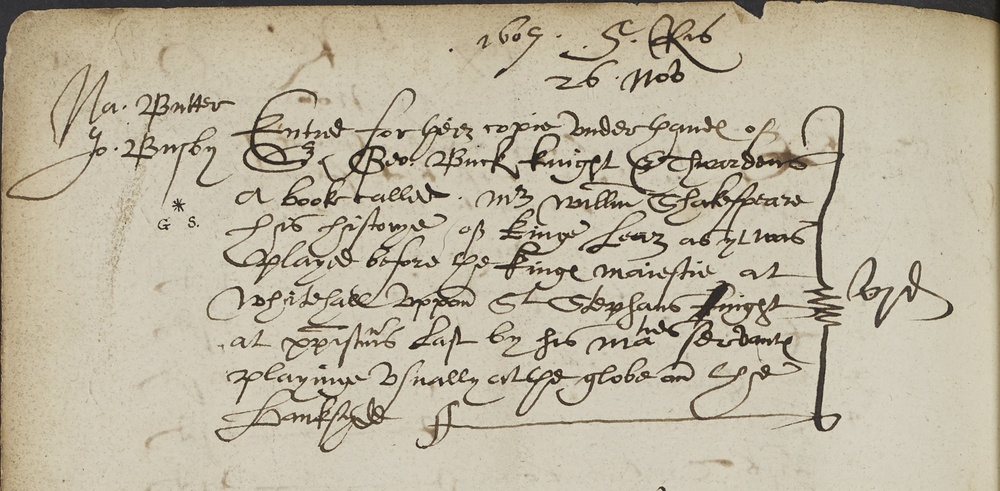 1607. 5. Ris
26 Nov
Na. Butter
Jo. Busby
Entred for their copie vnder hande of
Sr Geo. Buck knight & Thwardens
A booke called. Mr William Shakespeare
his historye of Kinge Lear as yt was
played before the kinges maiestie at
Whitehall vppon St Stephans knight
at xpistmas Last by his maties servantes
playinge vsually at the globe on the
Banksyde
vjd
* G S.